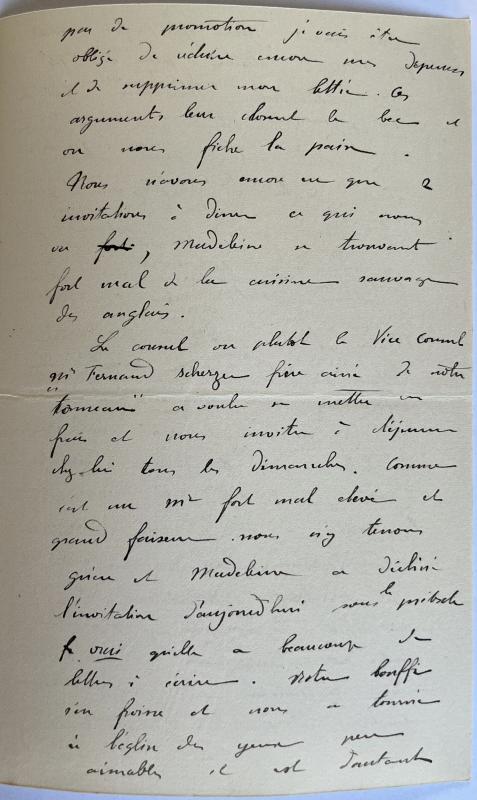 peu de promotion je vais être
obligé de réduire encore mes dépenses
et de supprimer mon lettié. Ces
arguments leur closent le bec et
on nous fiche la paix.
Nous n'avons encore eu que 2
invitations à diner ce qui nous
va, Madeleine se trouvant
fort mal de la cuisine sauvage
des anglais.
Le consul ou plutôt le Vice Consul
Mr Fernand scherzer frère ainé de notre
"tonneau" a voulu se mettre en
frais et nous invite à déjeuner
chez lui tous les dimanches. Comme
c'est un Mr fort mal élevé et
grand faiseur nous n'y tenons
guère et Madeleine a décliné
l'invitation d'aujourdhui sous le prétexte
vrai qu'elle a beaucoup de
lettres à écrire. Notre bouffi
s'en froisse et nous a
à l'église des yeux peu
aimables il est d'autant